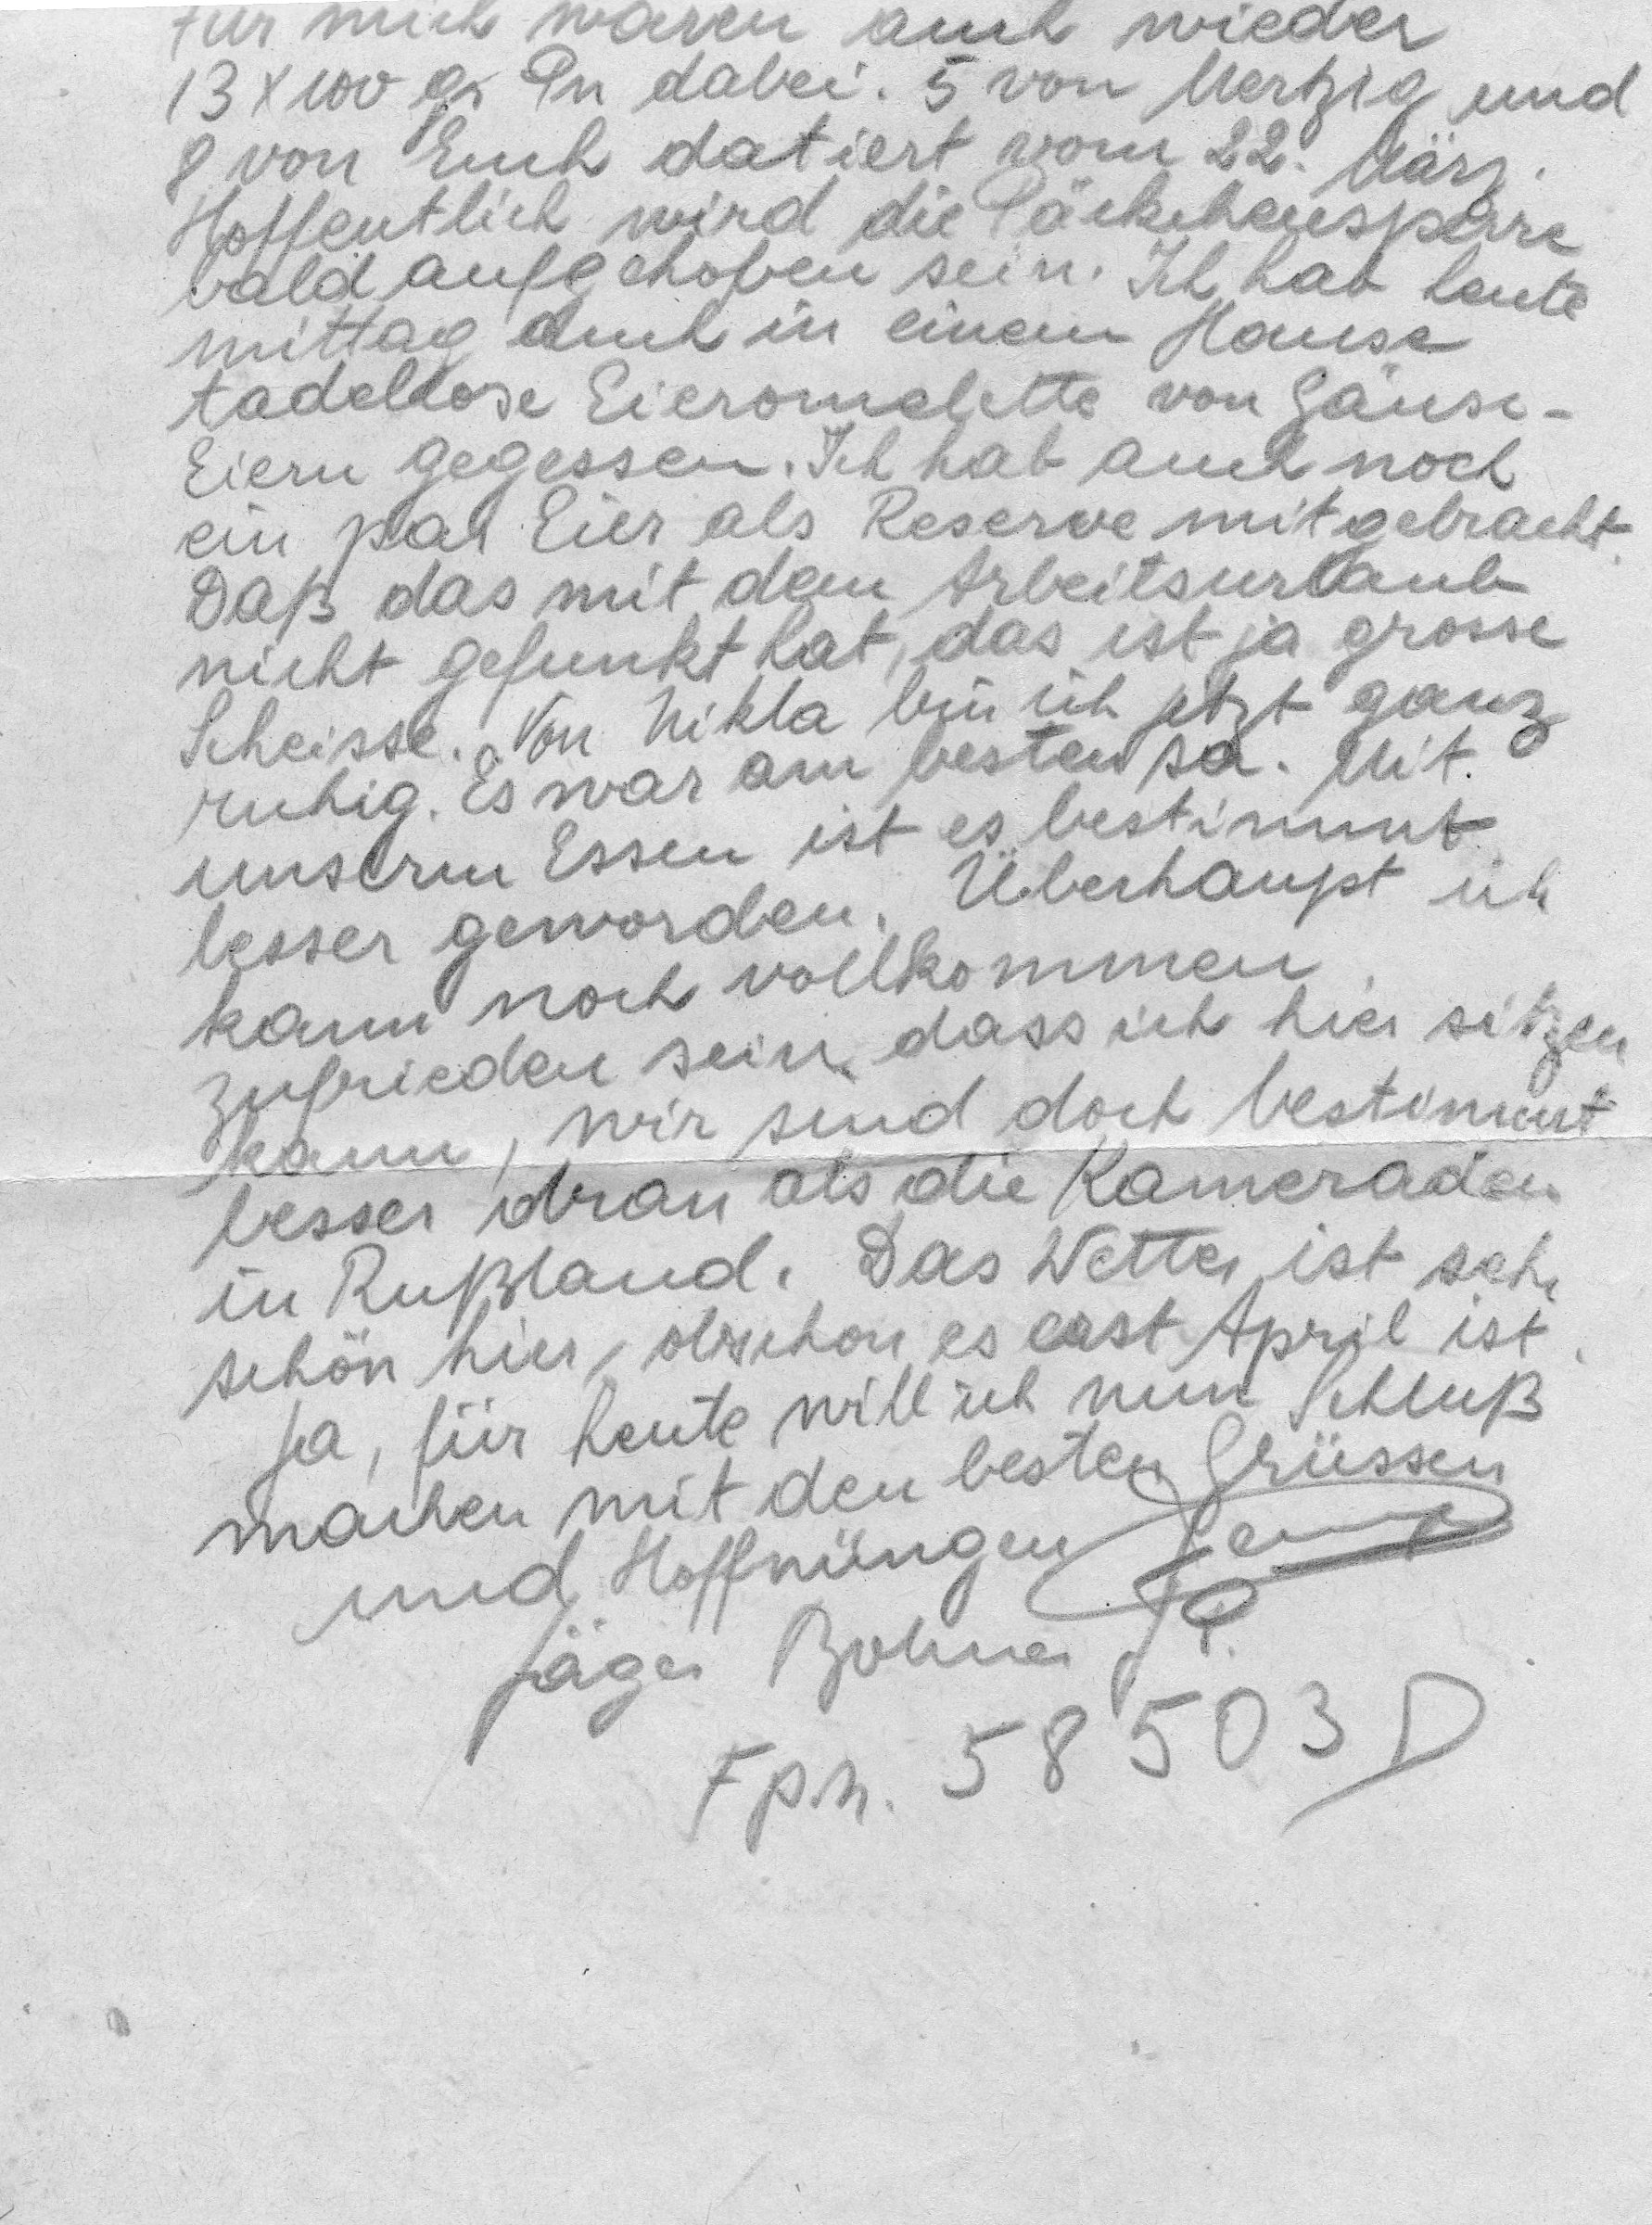 Für mich waren auch wieder
13 x 100 gr Pn dabei. 5 von Mertzig und
8 von Euch datiert vom 22. März.
Hoffentlich wird die Päckchensperre
bald aufgehoben sein. Ich hab heute
mittag auch in einem Hause
tadellose Eieromelette von Gänse-
Eiern gegessen. Ich hab auch noch
ein par Eier als Reserve mitgebracht.
Daß das mit dem Arbeitsurlaub
nicht gefunkt hat, das ist ja grosse
Scheisse. Von Nikla bin ich jetzt ganz
ruhig. Es war am besten so. Mit
unserm Essen ist es bestimmt
besser geworden. Überhaupt ich
kann noch vollkommen
zufrieden sein dass ich hier sitzen
kann, wir sind doch bestimmt
besser dran als die Kameraden
in Rußland. Das Wetter ist sehr
schön hier, obschon es erst April ist.
Ja, für heute will ich nun Schluß
machen mit den besten Grüssen
und Hoffnungen
Jäger Bohner
Fpn. 58 503 D